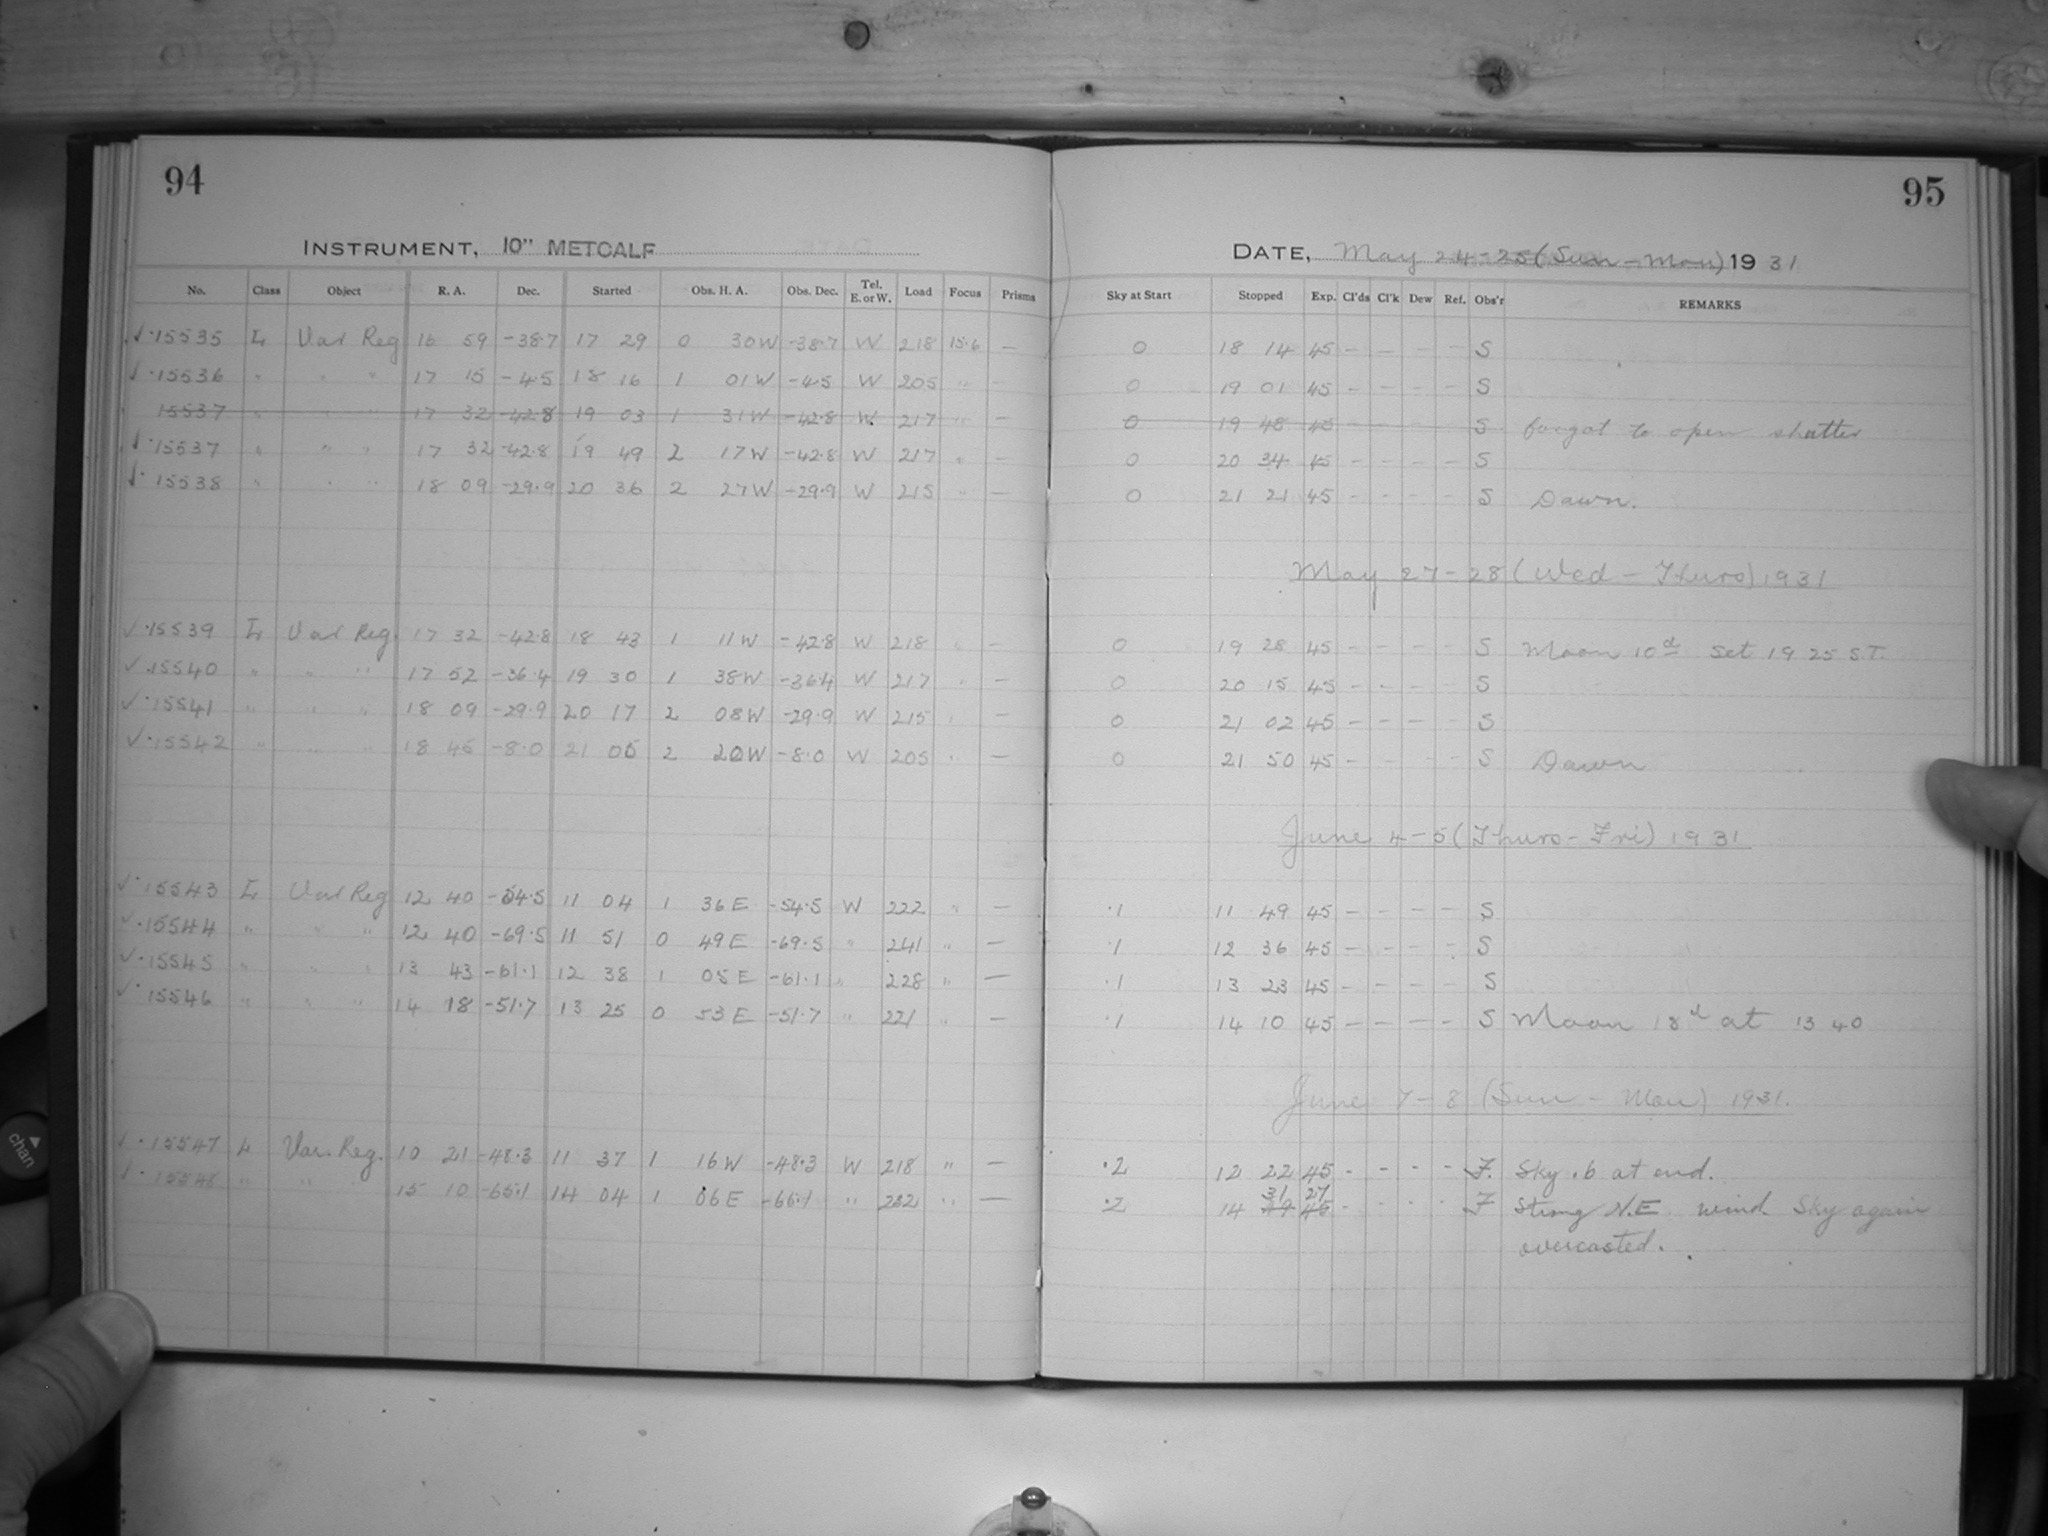 94
95
INSTRUMENT, 10" METCALF
DATE, May 24-25 (Sun - Mon) 19 31
No. Class Object R. A. Dec. Started Obs. H. A. Obs. Dec. Tel. E. or W. Load Focus Prisms Sky at Start Stopped Exp. Cl'ds Cl'k Dew Ref. Obs'r REMARKS
√ · 15535 L Var Reg 16 59 -38.7 17 29 0 30 W -38.7 W 218 15.6 — 0 18 14 45 - - - - S
√ · 15536 " " " 17 15 -4.5 18 16 1 01 W -4.5 W 205 " — 0 19 01 45 - - - - S
15537 " " " 17 32 -42.8 19 03 1 31 W -42.8 W. 217 " — 0 19 48 45 - - - - S forgot to open shutter
√ · 15537 " " " 17 32 -42.8 19 49 2 17 W -42.8 W 217 " — 0 20 34 45 - - - - S
√ · 15538 " " " 18 09 -29.9 20 36 2 27 W -29.9 W 215 " — 0 21 21 45 - - - - S Dawn.
May 27-28 (Wed - Thurs) 1931
√ · 15539 L Var Reg. 17 32 -42.8 18 43 1 11 W -42.8 W 218 " — 0 19 28 45 - - - - S Moon 10d Set 19 25 S.T.
√ · 15540 " " " 17 52 -36.4 19 30 1 38 W -36.4 W 217 " — 0 20 15 45 - - - - S
√ · 15541 " " " 18 09 -29.9 20 17 2 08 W -29.9 W 215 " — 0 21 02 45 - - - - S
√ · 15542 " " " 18 45 -8.0 21 05 2 20 W -8.0 W 205 " — 0 21 50 45 - - - - S Dawn
June 4-5 (Thurs - Fri) 1931
√ · 15543 L Var Reg 12 40 -54.5 11 04 1 36 E -54.5 W 222 " — .1 11 49 45 - - - - S
√ · 15544 " " " 12 40 -69.5 11 51 0 49 E -69.5 " 241 " — .1 12 36 45 - - - - S
√ · 15545 " " " 13 43 -61.1 12 38 1 05 E -61.1 " 228 " — .1 13 23 45 - - - - S
√ · 15546 " " " 14 18 -51.7 13 25 0 53 E -51.7 " 221 " — .1 14 10 45 - - - - S Moon 18d at 13 40
June 7-8 (Sun - Mon) 1931.
√ · 15547 L Var. Reg. 10 21 -48.3 11 37 1 16 W -48.3 W 218 " — .2 12 22 45 - - - - F. Sky .6 at end.
31 27
√ · 15548 " " " 15 10 14 04 1 06 E " " — .2 14 49 45 - - - - F Strong N.E. wind. Sky again
overcasted.
chan